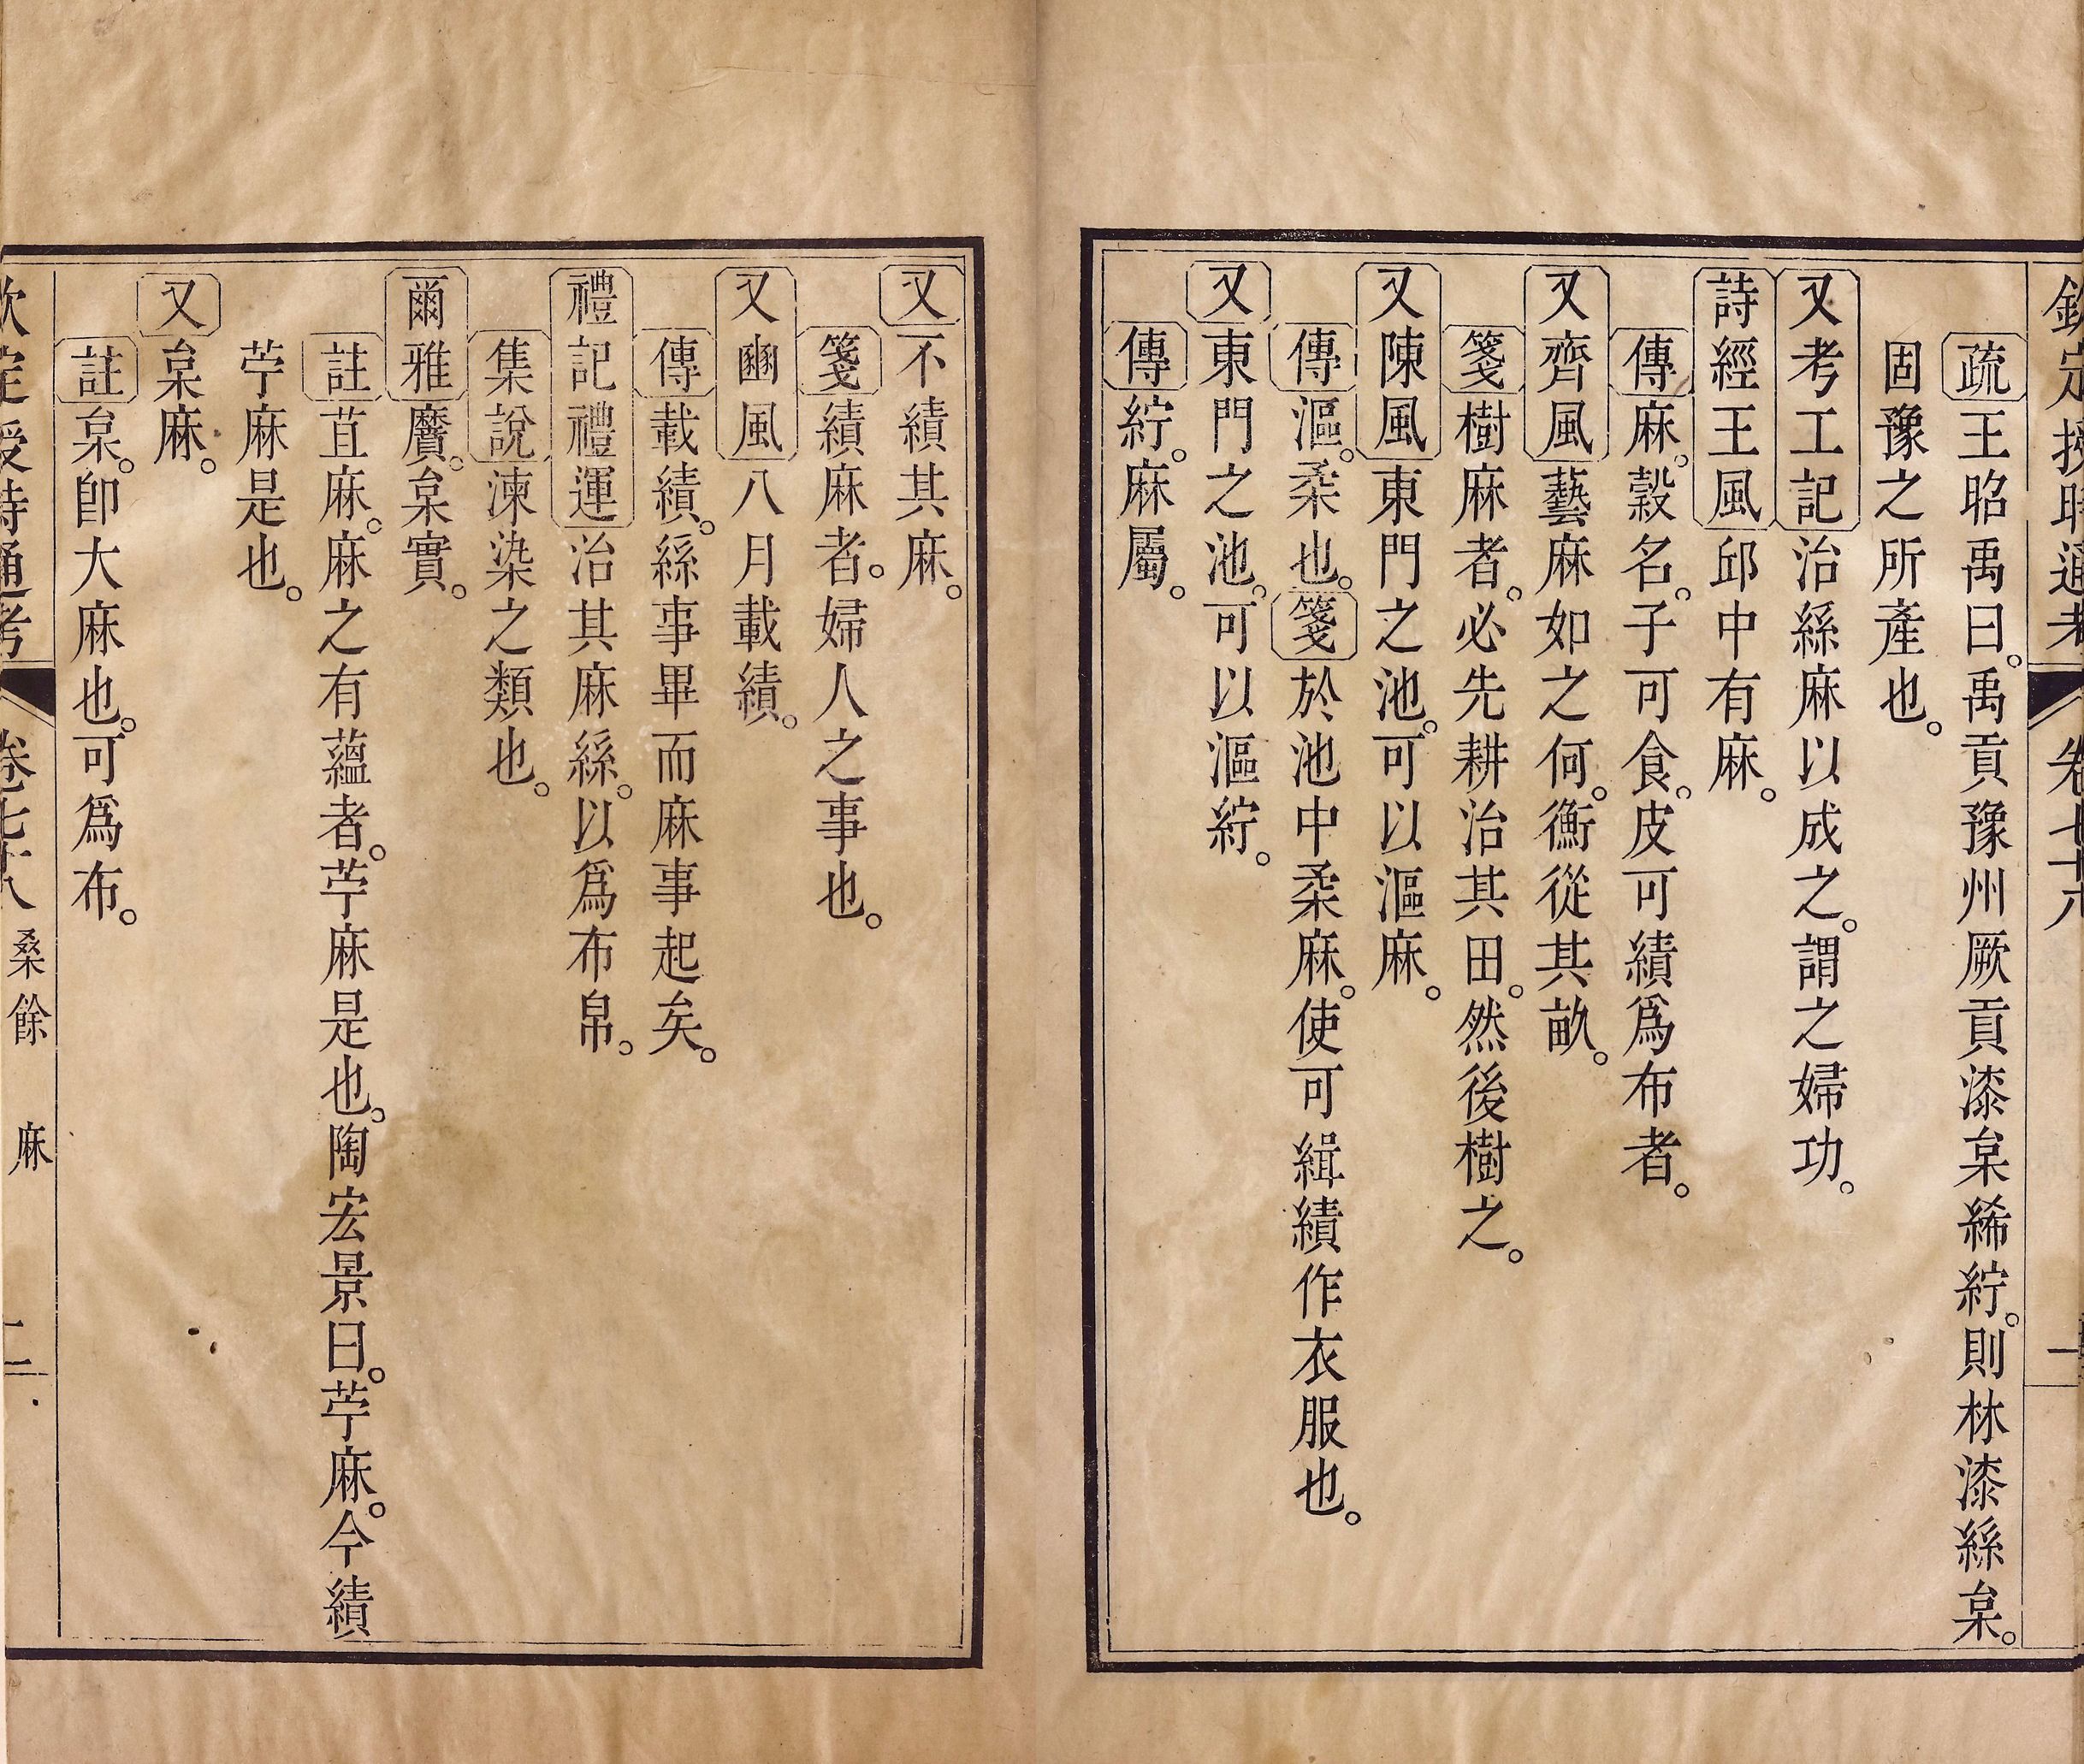 欽定授時通考 卷七十八 一
疏王昭禹曰。禹貢豫州厥貢漆枲絺紵。則林漆絲枲。
固豫之所產也。
又考工記治絲麻以成之。謂之婦功。
詩經王風邱中有麻。
傳麻。穀名。子可食。皮可績爲布者。
又齊風藝麻如之何。衡從其畝。
箋樹麻者。必先耕治其田。然後樹之。
又陳風東門之池。可以漚麻。
傳漚。柔也。箋於池中柔麻。使可緝績作衣服也。
又東門之池。可以漚紵。
傳紵。麻屬。
又不績其麻。
箋績麻者。婦人之事也。
又豳風八月載績。
傳載績。絲事畢而麻事起矣。
禮記禮運治其麻絲。以爲布帛。
集說湅染之類也。
爾雅黂。枲實。
註苴麻。麻之有蘊者。苧麻是也。陶宏景曰。苧麻。今績
苧麻是也。
又枲麻。
註枲。卽大麻也。可爲布。
欽定授時通考 卷七十八 桑餘 麻 二